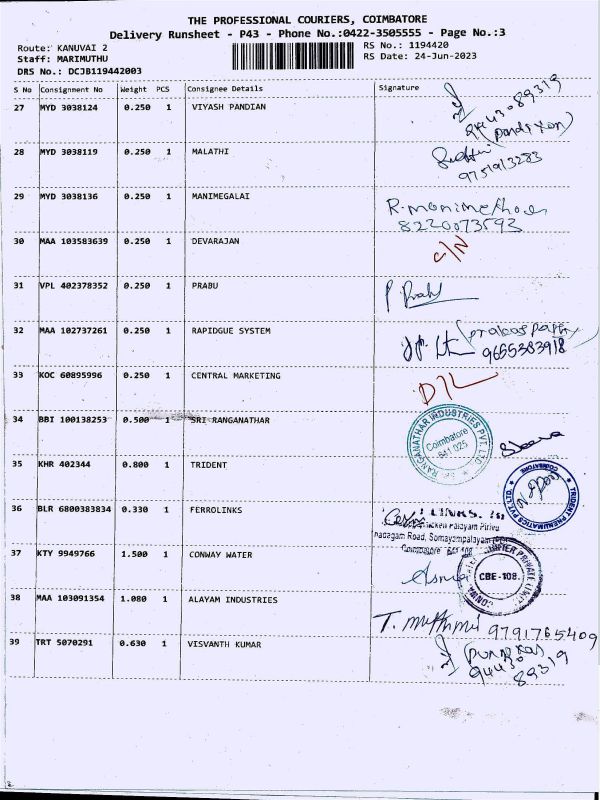 THE PROFESSIONAL COURIERS, COIMBATORE
Delivery Runsheet - P43 - Phone No.:0422-3505555 - Page No.:3
Route: KANUVAI 2
RS No.: 1194420
Staff: MARIMUTHU
RS Date: 24-Jun-2023
DRS No.: DCJB119442003
S No Consignment No Weight PCS Consignee Details Signature
27 MYD 3038124 0.250 1 VIYASH PANDIAN
28 MYD 3038119 0.250 1 MALATHI
9751913283
29 MYD 3038136 0.250 1 MANIMEGALAI R. manimekhalai
8220073593
30 MAA 103583639 0.250 1 DEVARAJAN C/N
31 VPL 402378352 0.250 1 PRABU P. Prabu
32 MAA 102737261 0.250 1 RAPIDGUE SYSTEM
9655383918
33 KOC 60895996 0.250 1 CENTRAL MARKETING D/L
34 BBI 100138253 0.500 1 SRI RANGANATHAR
SRI RANGANATHAR INDUSTRIES PVT. LTD.
Coimbatore
641 025
35 KHR 402344 0.800 1 TRIDENT
TRIDENT PNEUMATICS PVT. LTD.
COIMBATORE
36 BLR 6800383834 0.330 1 FERROLINKS
LINKS
Palayam Pirivu
Road, Somayampalayam
Coimbatore
37 KTY 9949766 1.500 1 CONWAY WATER
CBE-108.
38 MAA 103091354 1.080 1 ALAYAM INDUSTRIES
9791765409
39 TRT 5070291 0.630 1 VISVANTH KUMAR
94430
89319